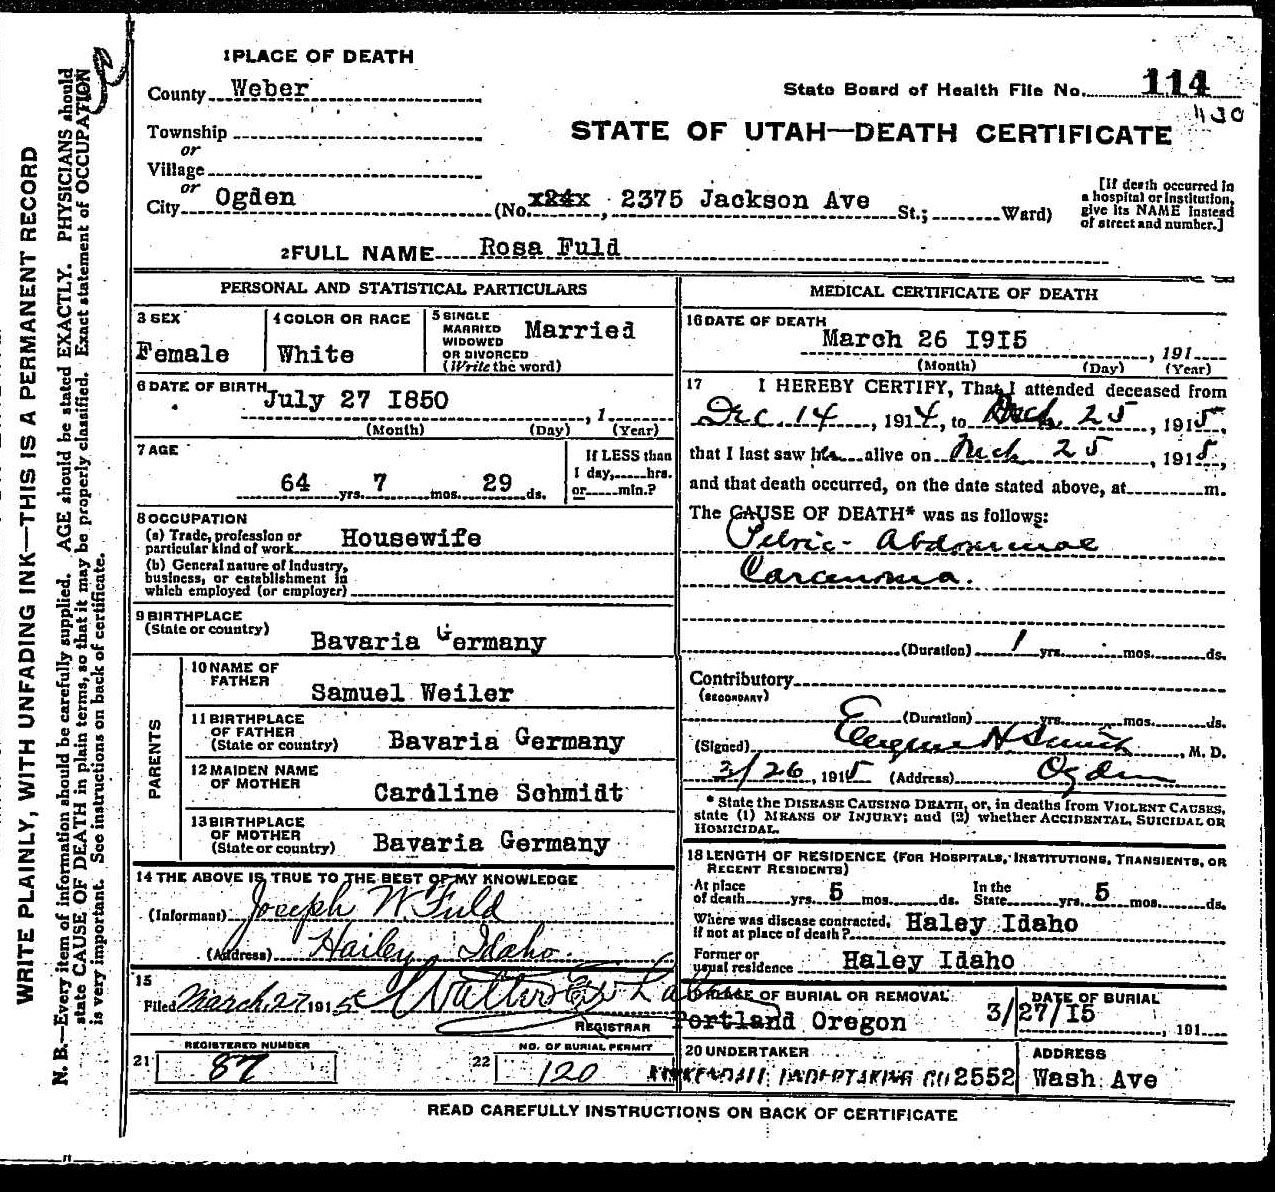 1 PLACE OF DEATH
County Weber
State Board of Health File No. 114
430
Township
or
STATE OF UTAH—DEATH CERTIFICATE
Village
or
City Ogden (No. x24x, 2375 Jackson Ave St.; Ward)
[If death occurred in
a hospital or institution,
give its NAME instead
of street and number.]
2 FULL NAME Rosa Fuld
PERSONAL AND STATISTICAL PARTICULARS
3 SEX
Female
4 COLOR OR RACE
White
5 SINGLE
MARRIED
WIDOWED
OR DIVORCED
(Write the word)
Married
6 DATE OF BIRTH
July 27 1850
, 1
(Month) (Day) (Year)
7 AGE
64 yrs. 7 mos. 29 ds.
If LESS than
1 day, hrs.
or min.?
8 OCCUPATION
(a) Trade, profession or
particular kind of work Housewife
(b) General nature of industry,
business, or establishment in
which employed (or employer)
9 BIRTHPLACE
(State or country)
Bavaria Germany
PARENTS
10 NAME OF
FATHER
Samuel Weiler
11 BIRTHPLACE
OF FATHER
(State or country) Bavaria Germany
12 MAIDEN NAME
OF MOTHER
Caroline Schmidt
13 BIRTHPLACE
OF MOTHER
(State or country) Bavaria Germany
14 THE ABOVE IS TRUE TO THE BEST OF MY KNOWLEDGE
(Informant) Joseph W Fuld
(Address) Hailey Idaho.
15
Filed March, 27 1915
Walter
REGISTRAR
REGISTERED NUMBER
21 87
NO. OF BURIAL PERMIT
22 120
MEDICAL CERTIFICATE OF DEATH
16 DATE OF DEATH
March 26 1915
, 191
(Month) (Day) (Year)
17 I HEREBY CERTIFY, That I attended deceased from
Dec. 14, 1914, to Mch 25, 1915,
that I last saw her alive on Mch 25, 1915,
and that death occurred, on the date stated above, at m.
The CAUSE OF DEATH* was as follows:
Pelvic - Abdominal
Carcinoma.
(Duration) 1 yrs. mos. ds.
Contributory
(SECONDARY)
(Duration) yrs. mos. ds.
(Signed) Eugene H Smith, M. D.
3/26, 1915 (Address) Ogden
* State the DISEASE CAUSING DEATH, or, in deaths from VIOLENT CAUSES,
state (1) MEANS OF INJURY; and (2) whether ACCIDENTAL, SUICIDAL OR
HOMICIDAL.
18 LENGTH OF RESIDENCE (FOR HOSPITALS, INSTITUTIONS, TRANSIENTS, OR
RECENT RESIDENTS)
At place
of death yrs. 5 mos. ds.
In the
State yrs. 5 mos. ds.
Where was disease contracted,
if not at place of death? Haley Idaho
Former or
usual residence Haley Idaho
PLACE OF BURIAL OR REMOVAL
Portland Oregon
DATE OF BURIAL
3/27/15
, 191
20 UNDERTAKER
KIRKENDALL UNDERTAKING CO 2552
ADDRESS
Wash Ave
READ CAREFULLY INSTRUCTIONS ON BACK OF CERTIFICATE
WRITE PLAINLY, WITH UNFADING INK—THIS IS A PERMANENT RECORD
N. B.—Every item of information should be carefully supplied. AGE should be stated EXACTLY. PHYSICIANS should
state CAUSE OF DEATH in plain terms, so that it may be properly classified. Exact statement of OCCUPATION
is very important. See instructions on back of certificate.